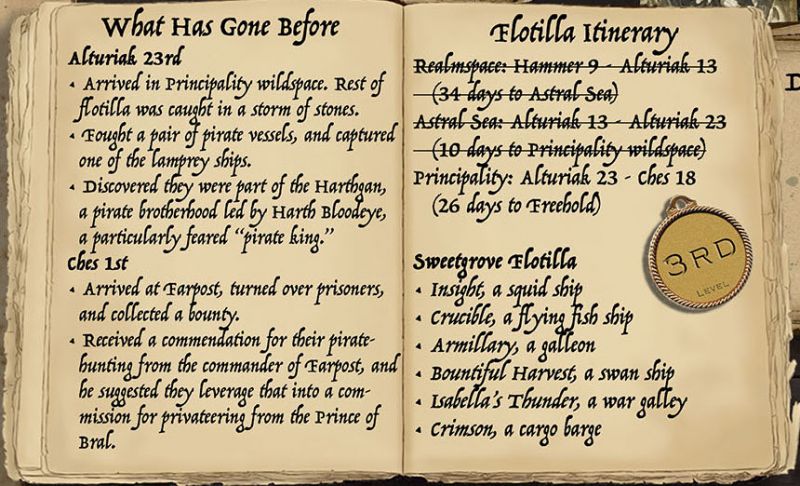 What Has Gone Before
Alturiak 23rd
• Arrived in Principality wildspace. Rest of
flotilla was caught in a storm of stones.
• Fought a pair of pirate vessels, and captured
one of the lamprey ships.
• Discovered they were part of the Harthgan,
a pirate brotherhood led by Harth Bloodeye,
a particularly feared “pirate king.”
Ches 1st
• Arrived at Farpost, turned over prisoners,
and collected a bounty.
• Received a commendation for their pirate-
hunting from the commander of Farpost, and
he suggested they leverage that into a com-
mission for privateering from the Prince of
Bral.
Flotilla Itinerary
Realmspace: Hammer 9 - Alturiak 13
(34 days to Astral Sea)
Astral Sea: Alturiak 13 - Alturiak 23
(10 days to Principality wildspace)
Principality: Alturiak 23 - Ches 18
(26 days to Freehold)
3RD
LEVEL
Sweetgrove Flotilla
• Insight, a squid ship
• Crucible, a flying fish ship
• Armillary, a galleon
• Bountiful Harvest, a swan ship
• Isabella's Thunder, a war galley
• Crimson, a cargo barge
D